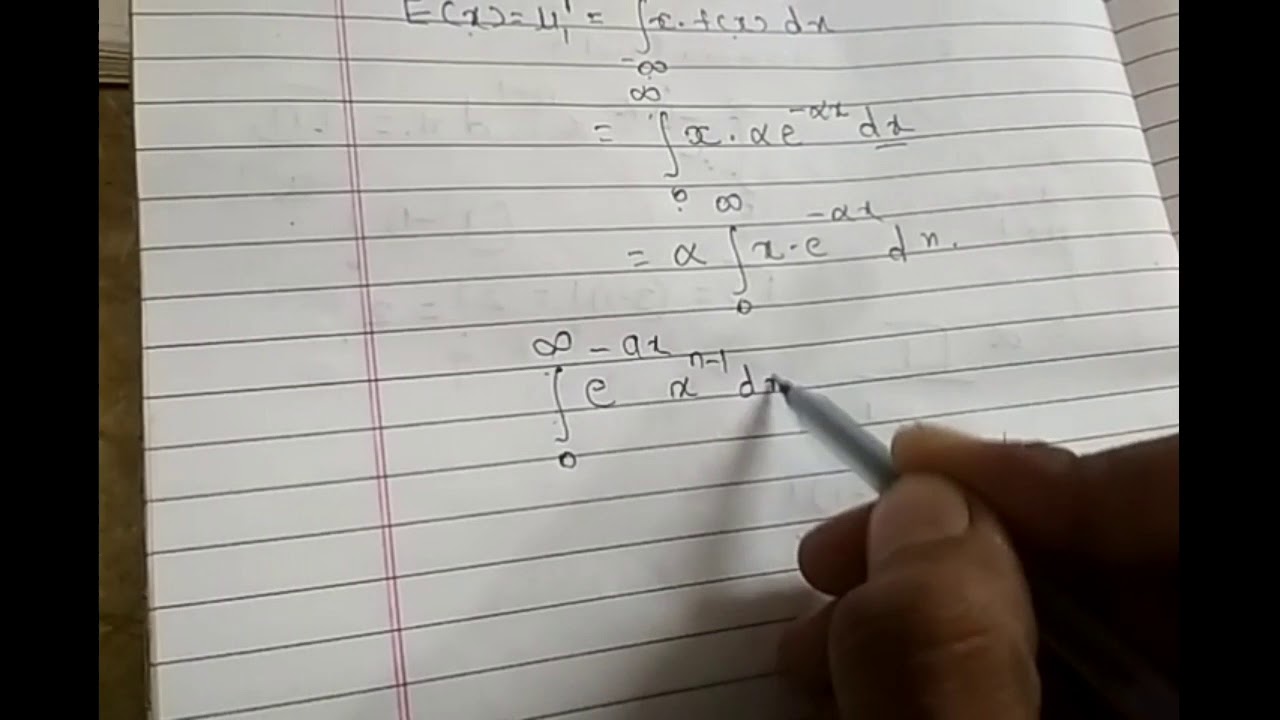 E(x) = μ₁' = ∫_{-∞} x. f(x) dx
= ∫₀^∞ x. αe^{-αx} dx
= α ∫₀^∞ x. e^{-αx} dn.
∫₀^∞ e^{-ax} x^{n-1} dx